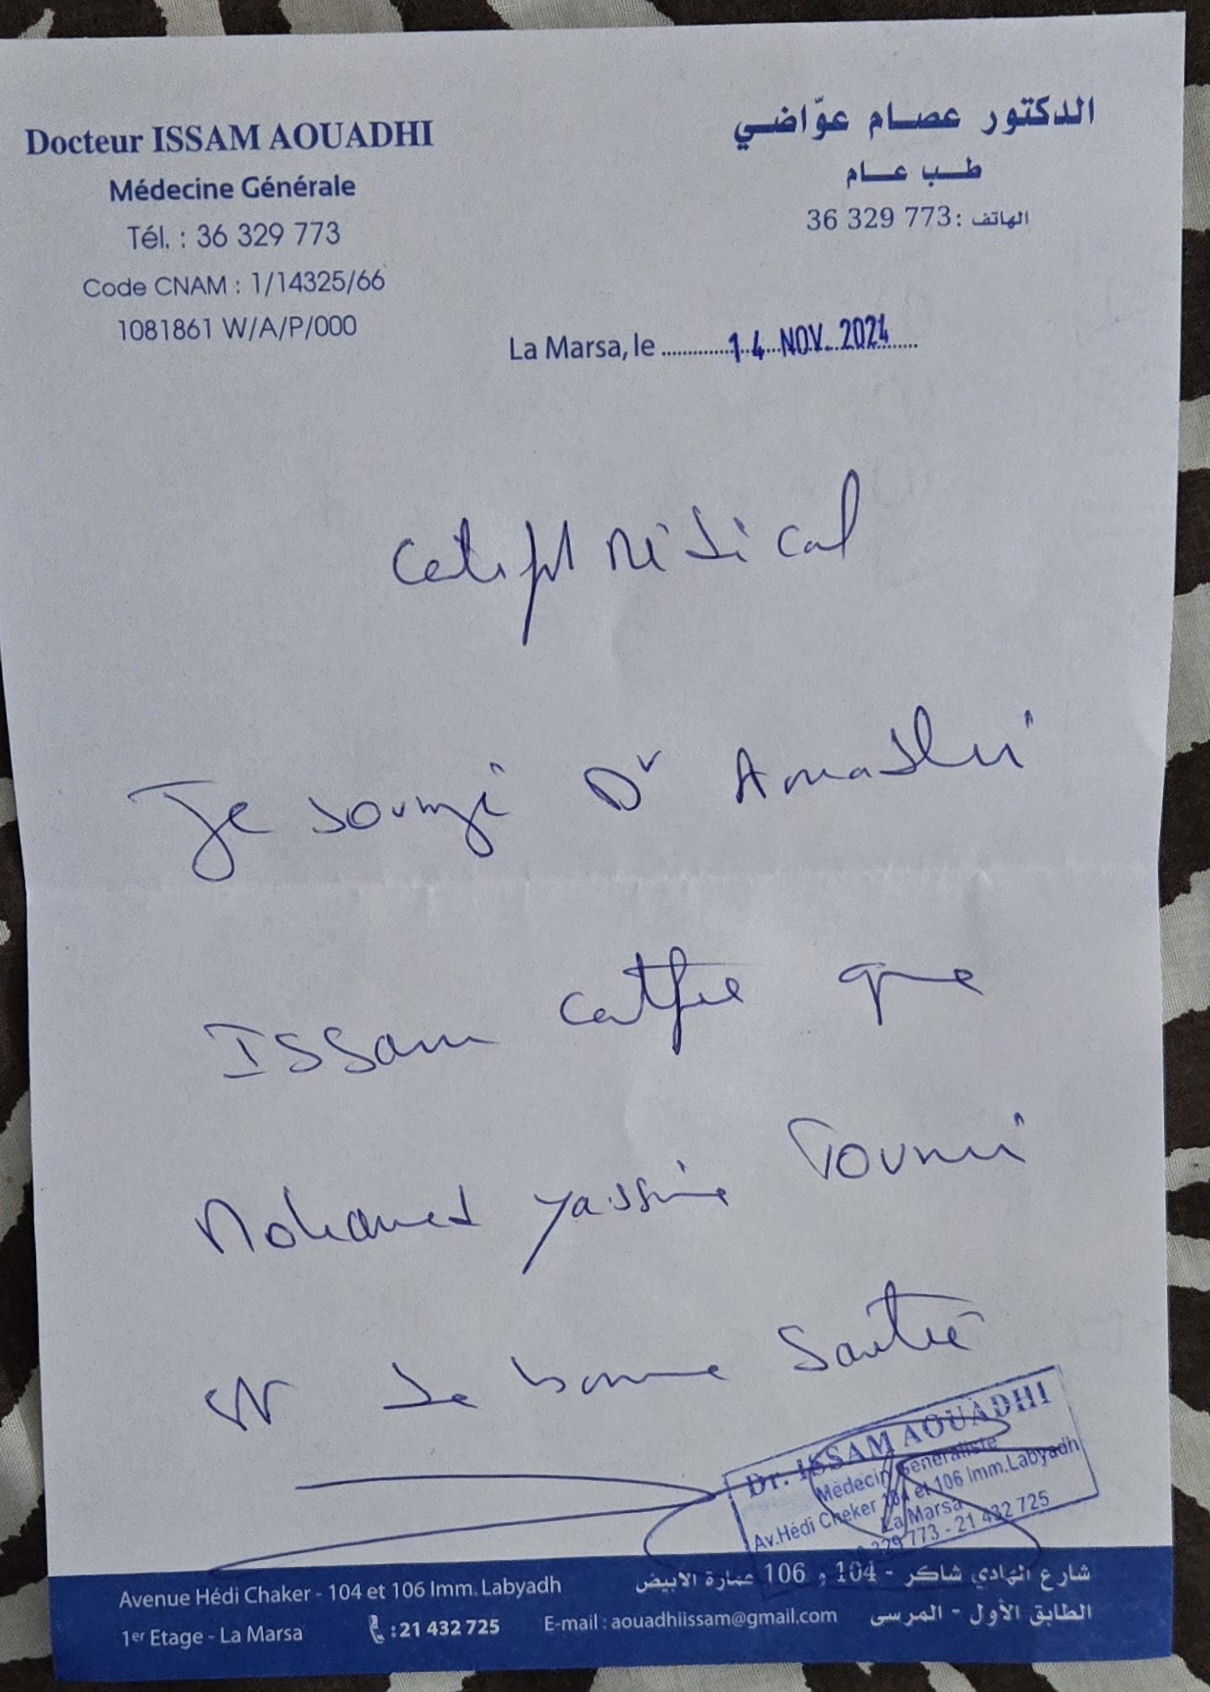 Docteur ISSAM AOUADHI
Médecine Générale
Tél. : 36 329 773
Code CNAM : 1/14325/66
1081861 W/A/P/000
الدكتور عصام عوّاضي
طب عام
الهاتف : 773 329 36
La Marsa, le 14 NOV. 2024
Certificat Médical
Je soussigné Dr Aouadhi
Issam certifie que
Mohamed Yassine Tounsi
est de bonne santé
Dr. ISSAM AOUADHI
Médecin Généraliste
Av.Hédi Cheker 104 et 106 Imm.Labyadh
La Marsa
329 773 - 21 432 725
Avenue Hédi Chaker - 104 et 106 Imm. Labyadh
1er Etage - La Marsa
:21 432 725
E-mail : aouadhiissam@gmail.com
شارع الهادي شاكر - 104 و 106 عمارة الابيض
الطابق الأول - المرسى